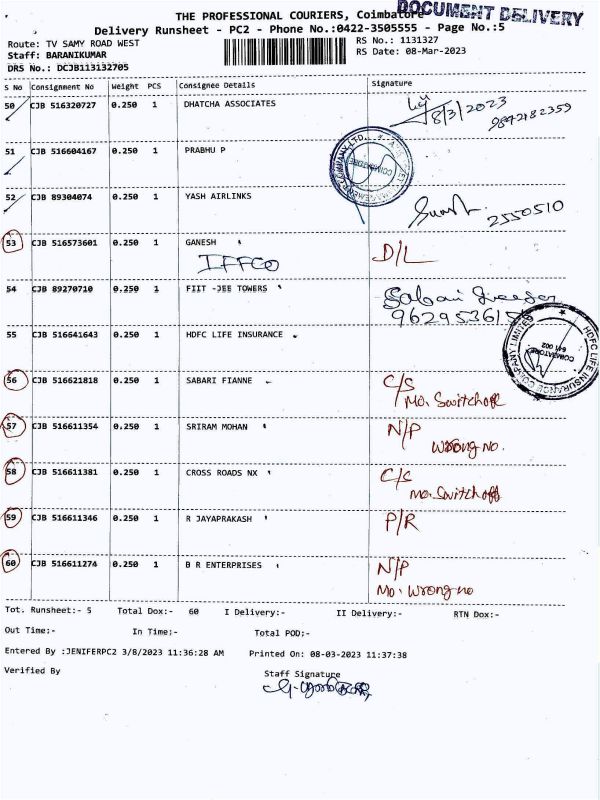 THE PROFESSIONAL COURIERS, Coimbatore
DOCUMENT DELIVERY
Delivery Runsheet - PC2 - Phone No.:0422-3505555 - Page No.:5
Route: TV SAMY ROAD WEST
RS No.: 1131327
Staff: BARANIKUMAR
RS Date: 08-Mar-2023
DRS No.: DCJB113132705
S No Consignment No Weight PCS Consignee Details Signature
50 CJB 516320727 0.250 1 DHATCHA ASSOCIATES 8/3/2023
9842182359
51 CJB 516604167 0.250 1 PRABHU P
COIMBATORE
52 CJB 89304074 0.250 1 YASH AIRLINKS
2550510
53 CJB 516573601 0.250 1 GANESH D/L
IFFCO
54 CJB 89270710 0.250 1 FIIT -JEE TOWERS
HDFC LIFE INSURANCE COMPANY LIMITED
COIMBATORE
641 002
55 CJB 516641643 0.250 1 HDFC LIFE INSURANCE
56 CJB 516621818 0.250 1 SABARI FIANNE C/S
Mo. Switchoff
57 CJB 516611354 0.250 1 SRIRAM MOHAN N/P
Wrong no.
58 CJB 516611381 0.250 1 CROSS ROADS NX C/S
Mo. Switchoff
59 CJB 516611346 0.250 1 R JAYAPRAKASH P/R
60 CJB 516611274 0.250 1 B R ENTERPRISES N/P
Mo. Wrong no
Tot. Runsheet:- 5 Total Dox:- 60 I Delivery:- II Delivery:- RTN Dox:-
Out Time:- In Time:- Total POD:-
Entered By :JENIFERPC2 3/8/2023 11:36:28 AM Printed On: 08-03-2023 11:37:38
Verified By
Staff Signature